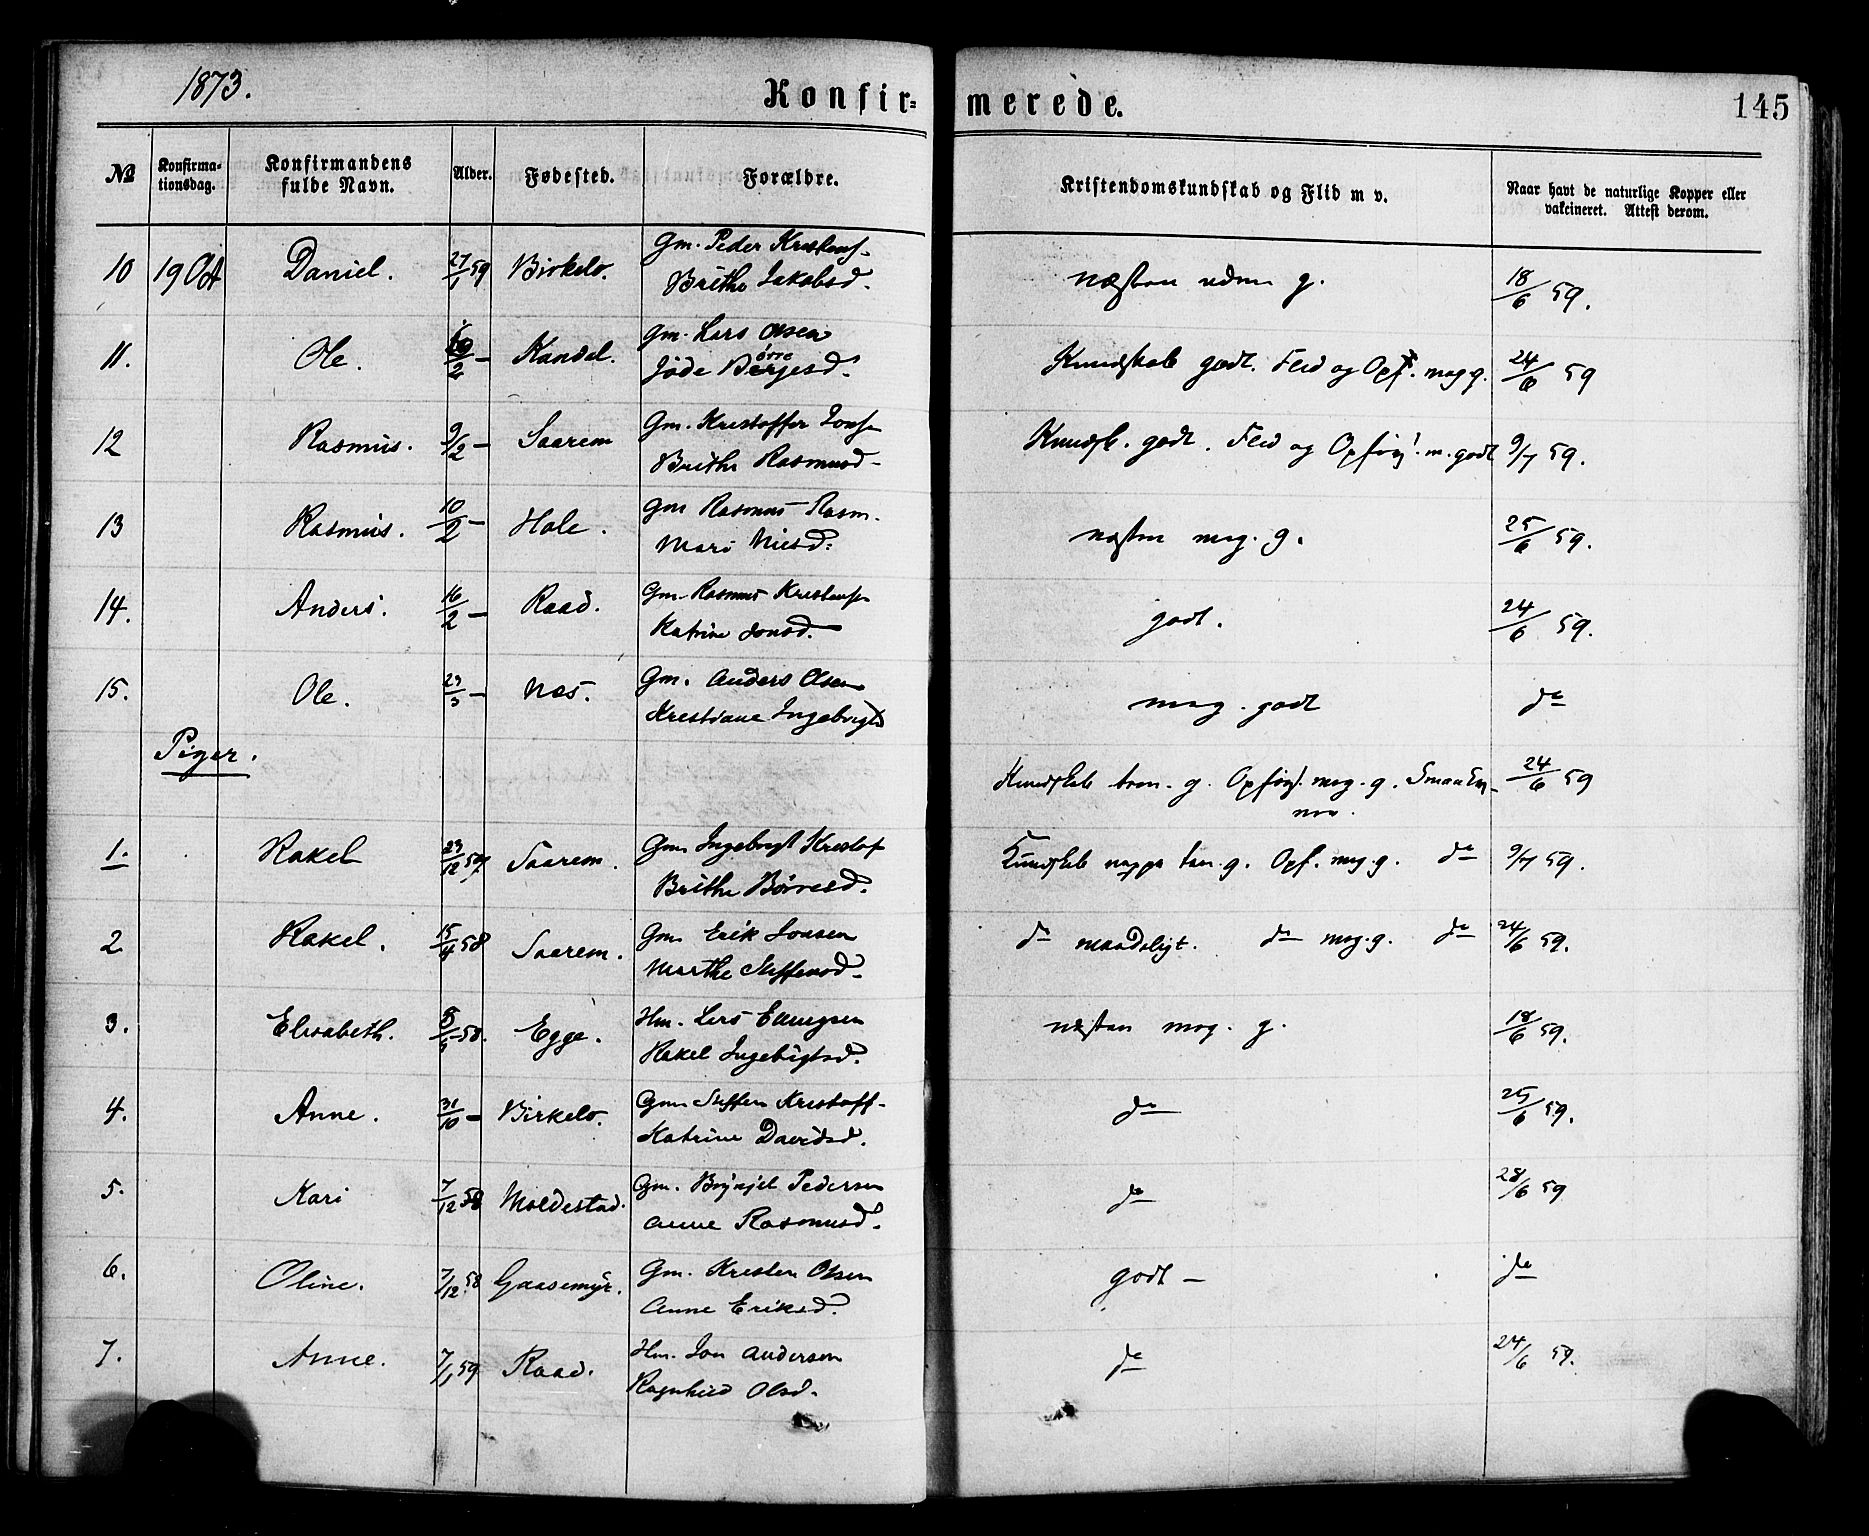 1873.
Konfir=
merede.
145
№
Konfirma-
tionsdag.
Konfirmandens
fulde Navn.
Alder.
Fødested.
Forældre.
Kristendomskundskab og Flid m v.
Naar havt de naturlige Kopper eller
vakcineret. Attest derom.
10 19 Oct Daniel. 27/1 59 Birkelo. Gm. Peder Kristens. næsten uden g. 18/6 59.
Brithe Jakobsd.
11. Ole. /2 – Kandal. Gm. Lars Olsen Kundskab godt. Flid og Opf. meg g. 24/6 59
Jøde Børresd.
12 Rasmus. 9/2 – Saarem Gm. Kristoffer Jons. Kundsk. godt. Flid og Opførs. m. godt 9/7 59.
Brithe Rasmusd.
13 Rasmus. 10/2 – Hole. Gm Rasmus Rasm. næsten meg. g. 25/6 59.
Mari Nilsd.
14. Anders. 16/2 – Raad. Gm. Rasmus Kristens. godt. 24/6 59.
Katrine Jonsd.
15. Ole. 23/3 – Næs. Gm. Anders Olsen meg. godt do
Kristiane Ingebrigtsd
Piger.
Kundskab tem. g. Opførs. meg. g. 24/6 59
1. Rakel 23/12 57. Saarem. Gm Ingebrigt Kristof Kundskab neppe tem. g. Opf. meg. g. do 9/7 59.
Brithe Børresd.
2 Rakel. 15/4 58 Saarem. Gm Erik Jonsen do maadeligt. do meg. g. do 24/6 59.
Marthe Steffensd.
3. Elisabeth. 58. Egge. Hm. Lars næsten meg. g. 18/6 59.
Rakel Ingebrigtsd.
4. Anne. 31/10 – Birkelo. Gm Steffen Kristoff. do 25/6 59.
Katrine Davidsd.
5. Kari 7/12 58 Moldestad. Gm. Brynjel Pedersen do 28/6 59
Anne Rasmusd.
6. Oline. 7/12 58 Gaasemyr. Gm. Kristen Olsen godt – do
Anne Eriksd.
7. Anne. 7/1 59 Raad. Hm. Jon Andersen do 24/6 59.
Ragnhild Olsd.